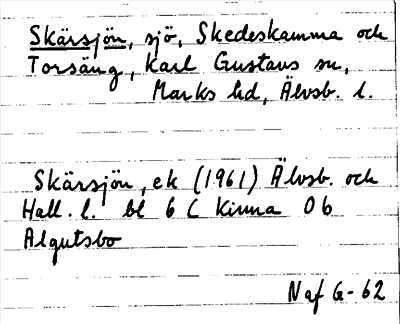 Skärsjön, sjö, Skedeskamma och
Torsäng, Karl Gustavs sn,
Marks hd, Älvsb. l.
Skärsjön, ek (1961) Älvsb. och
Hall. l. bl 6 C Kinna 0b
Algutsbo
Naf G-62